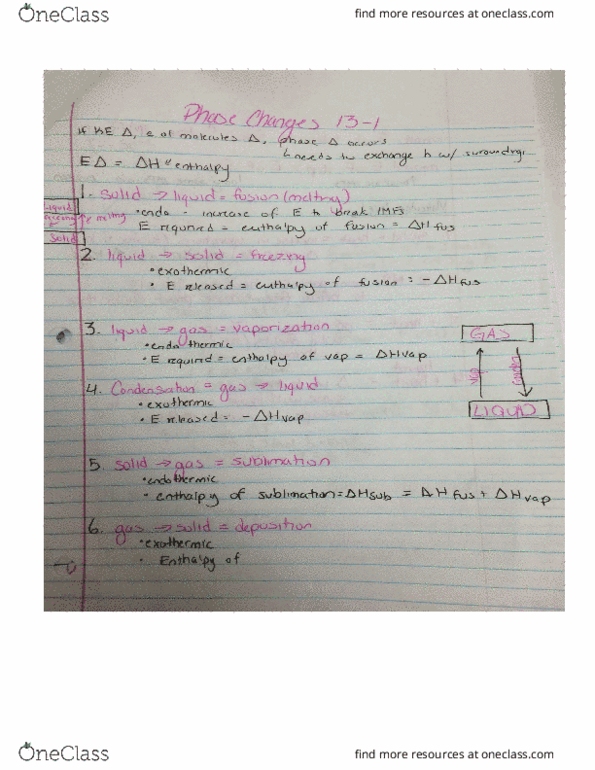 OneClass
find more resources at oneclass.com
Phase Changes 13-1
If KE Δ, e of molecules Δ, phase Δ occurs
↳ needs to exchange h w/ suroundngs
EΔ = ΔH "enthalpy
1. solid → liquid = fusion (melting)
• endo - increase of E to break IMFs
E required = enthalpy of fusion = ΔH fus
Liquid
freezing melting
Solid
2. liquid → solid = freezing
• exothermic
• E released = enthalpy of fusion = -ΔHfus
3. liquid → gas = vaporization
• endo thermic
• E required = enthalpy of vap = ΔHvap
GAS
LIQUID
4. Condensation = gas → liquid
• exothermic
• E released = -ΔHvap
5. solid → gas = sublimation
• endothermic
• enthalpy of sublimation = ΔHsub = ΔH fus + ΔH vap
6. gas → solid = deposition
• exothermic
• Enthalpy of
OneClass
find more resources at oneclass.com